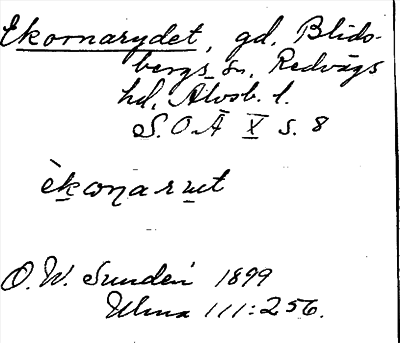 Ekornarydet, gd. Blids-
bergs sn, Redvägs
hd, Älvsb. l.
S.O.Ä X s. 8
èkoɳarut
O. W. Sundén 1899
Ulma 111:256.